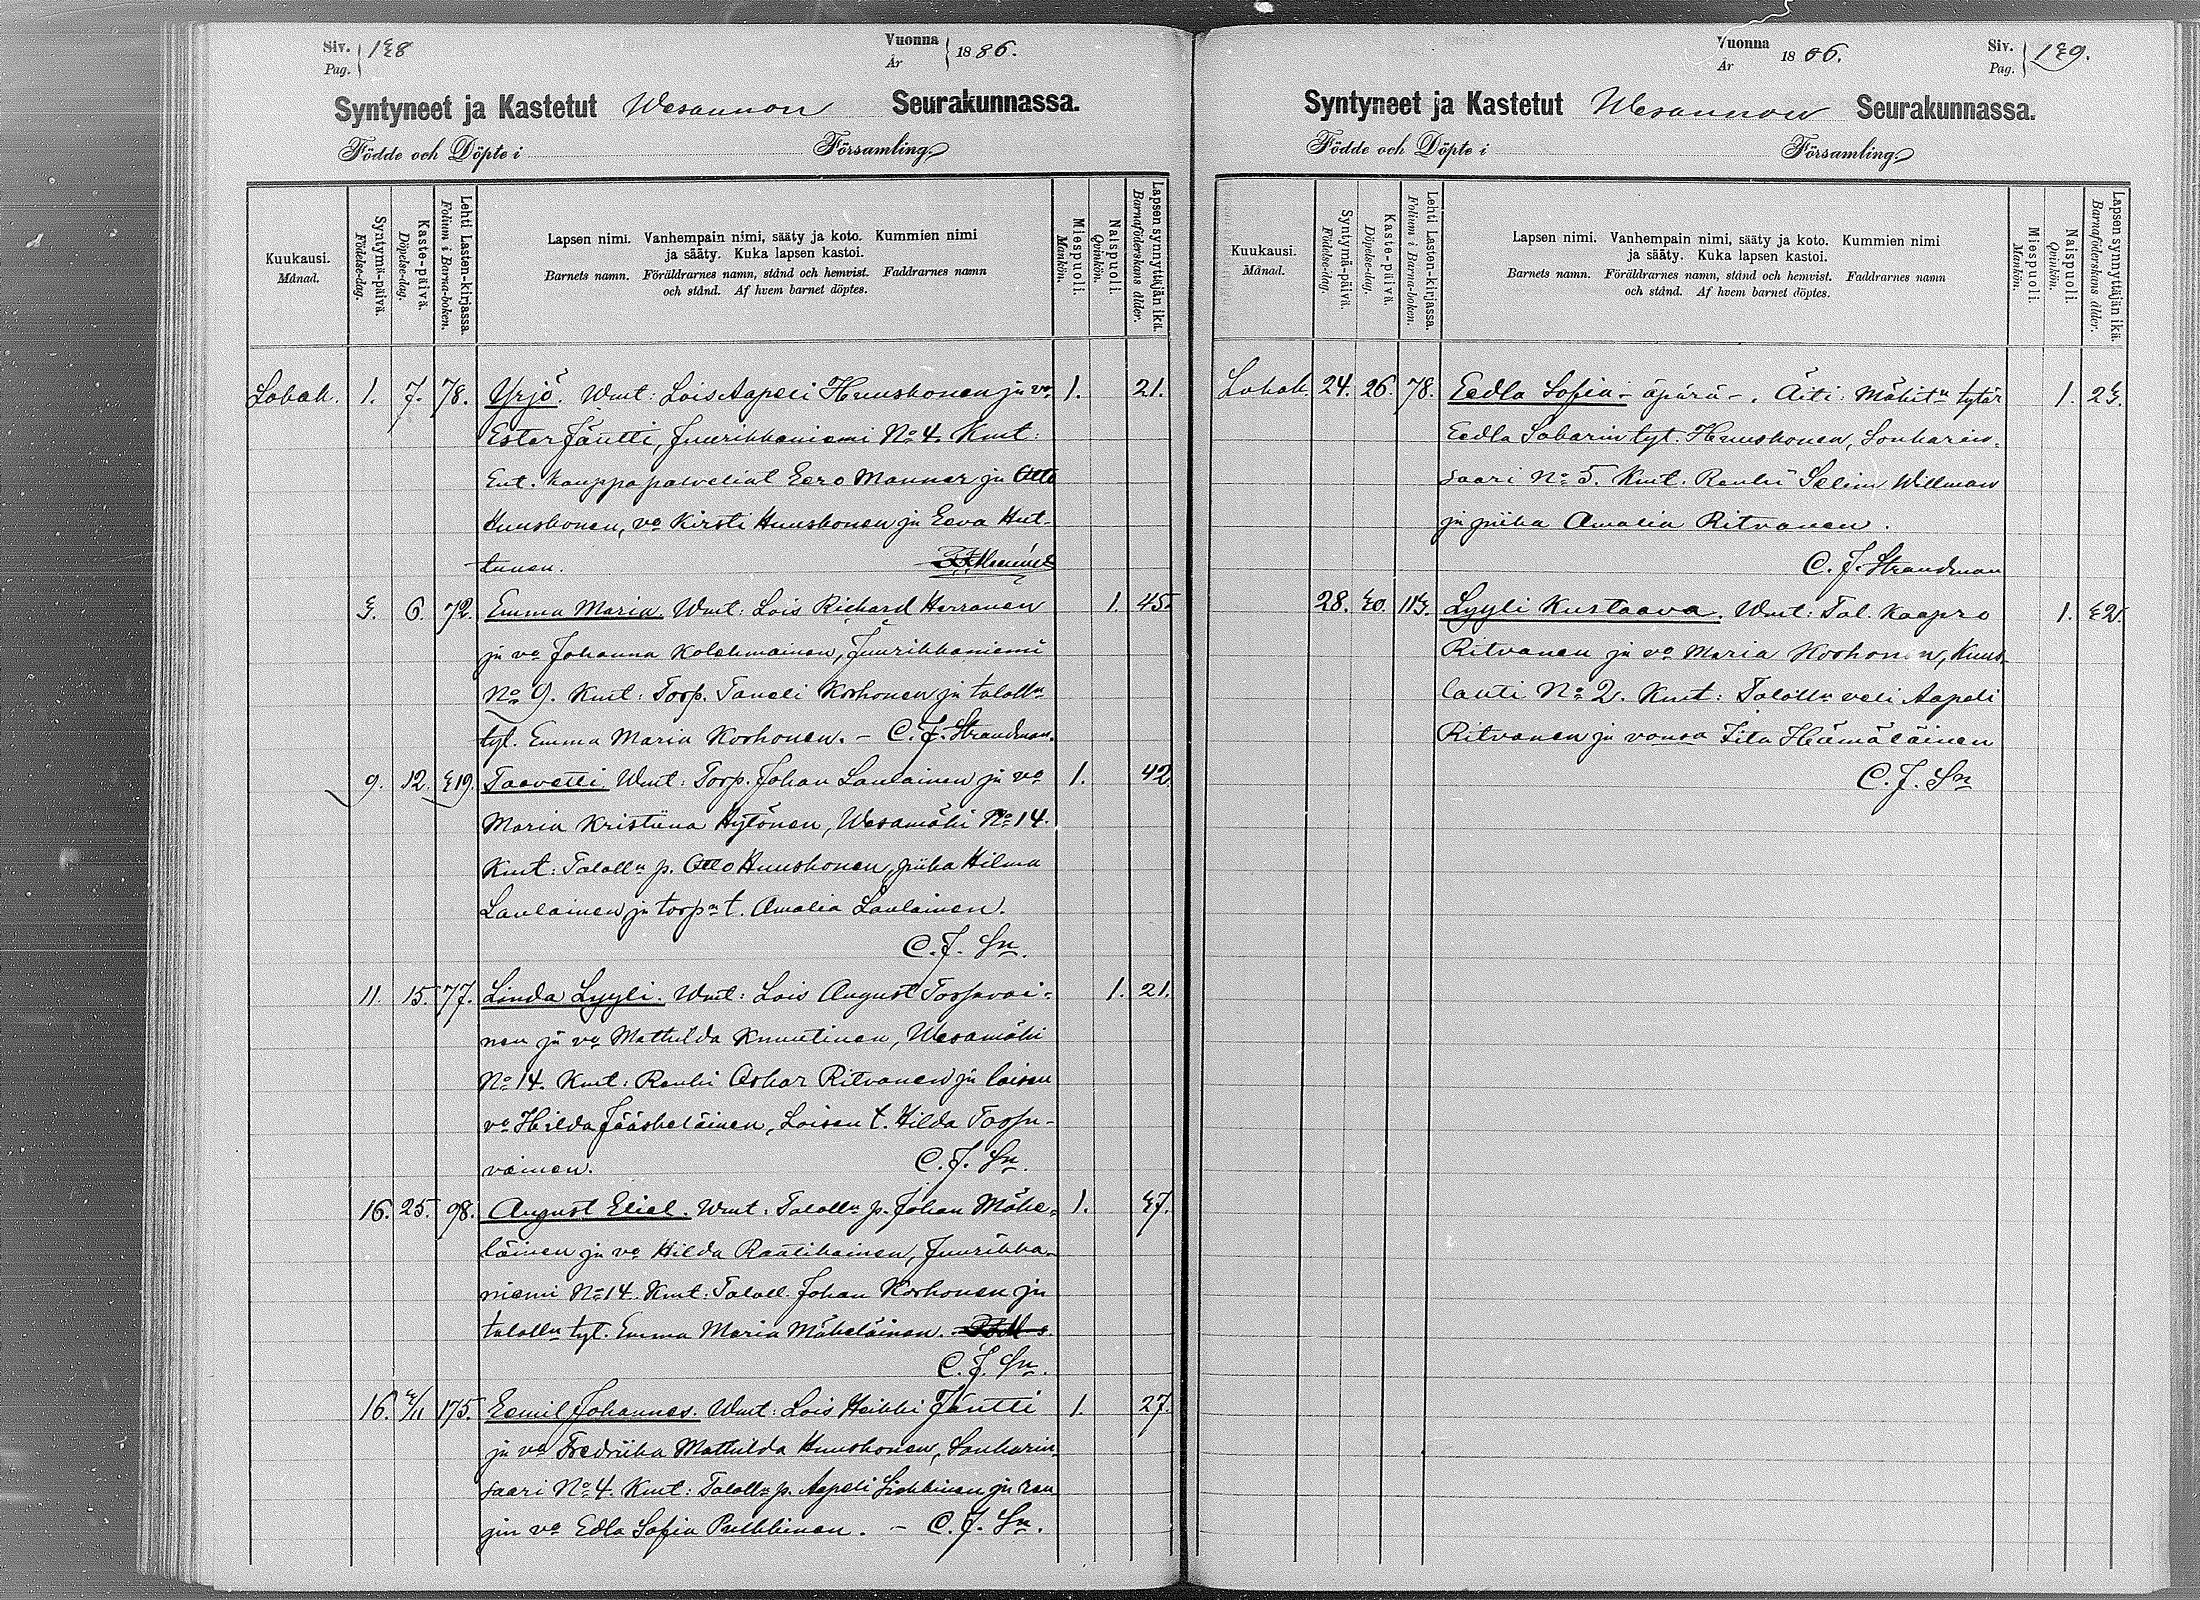 Siv. 138
Pag.
Vuonna 1886.
År
Syntyneet ja Kastetut Wesannon Seurakunnassa.
Födde och Döpte i Församling.
Kuukausi.
Månad.
Syntymä-päivä
Födelse-dag.
Kaste-päivä.
Döpelse-dag.
Lehti Lasten-kirjassa.
Folium i Barna-boken.
Lapsen nimi. Vanhempain nimi, sääty ja koto. Kummien nimi
ja sääty. Kuka lapsen kastoi.
Barnets namn. Föräldrarnes namn, stånd och hemvist. Faddrarnes namn
och stånd. Af hvem barnet döptes.
Miespuoli.
Mankön.
Naispuoli.
Qvinkön.
Lapsen synnyttäjän ikä.
Barnaföderskans ålder.
Lokak. 1. 7. 78. Yrjö. Wmt: Lois Aapeli Huuskonen ja vo 1. 21.
Ester Jäntti, Juurikkaniemi No 4. Kmt:
Ent. kauppapalveliat Eero Manner ja Otto
Huuskonen, vo Kirsti Huuskonen ja Eeva Hut-
tunen.
3. 6. 72. Emma Maria. Wmt: Lois Richard Herranen 1. 45.
ja vo Johanna Kolehmainen, Juurikkaniemi
No 9. Kmt: Torp. Taneli Korhonen ja talolln
tyt. Emma Maria Korhonen. - C. J. Strandman.
9. 12. 319. Taavetti. Wmt: Torp. Johan Laulainen ja vo 1. 42.
Maria Kristiina Hytönen, Wesamäki No 14.
Kmt: Talolln p. Otto Huuskonen, piika Hilma
Laulainen ja torpn t. Amalia Laulainen.
C. J. Sn.
11. 15. 77. Linda Lyyli. Wmt: Lois August Tossavai- 1. 21.
nen ja vo Mathilda Knuutinen, Wesamäki
No 14. Kmt: Renki Oskar Ritvanen ja loisen
vo Hilda Jääskeläinen, Loisen t. Hilda Tossa-
vainen. C. J. Sn.
16. 25. 98. August Eliel. Wmt: Talolln p. Johan Mäke- 1. 37.
läinen ja vo Hilda Raatikainen, Juurikka-
niemi No 14. Kmt: Taloll. Johan Korhonen ja
talolln tyt. Emma Maria Mäkeläinen.
C. J. Sn.
16. 3/11 175. Eemil Johannes. Wmt: Lois Heikki Jäntti 1. 27.
ja vo Fredriika Mathilda Huuskonen, Sonkarin-
saari No 4. Kmt: Talolln p. Aapeli Liukkinen ja ren-
gin vo Edla Sofia Pulkkinen. - C. J. Sn.
Vuonna 1886.
År
Siv. 139.
Pag.
Syntyneet ja Kastetut Wesannon Seurakunnassa.
Födde och Döpte i Församling.
Kuukausi.
Månad.
Syntymä-päivä
Födelse-dag.
Kaste-päivä.
Döpelse-dag.
Lehti Lasten-kirjassa.
Folium i Barna-boken.
Lapsen nimi. Vanhempain nimi, sääty ja koto. Kummien nimi
ja sääty. Kuka lapsen kastoi.
Barnets namn. Föräldrarnes namn, stånd och hemvist. Faddrarnes namn
och stånd. Af hvem barnet döptes.
Miespuoli.
Mankön.
Naispuoli.
Qvinkön.
Lapsen synnyttäjän ikä.
Barnaföderskans ålder.
Lokak. 24. 26. 78. Eedla Sofia - äpärä -. Äiti: Mökitn tytär 1. 23.
Eedla Sakarintyt. Huuskonen, Sonkarin-
saari No 5. Kmt. Renki Selim Willman
ja piika Amalia Ritvanen.
C. J. Strandman
28. 30. 113. Lyyli Kustaava. Wmt: Tal. Kaapro 1. 32.
Ritvanen ja vo Maria Korhonen, Kuus-
lanti No 2. Kmt: Talolln veli Aapeli
Ritvanen ja vonsa Fita Hämäläinen
C. J. Sn